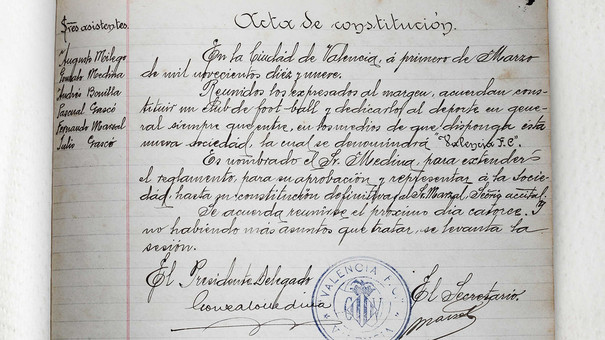 Sres asistentes.
Augusto Milego
Gonzalo Medina
Andrés Bonilla
Pascual Gascó
Fernando Marzal
Julio Gascó
Acta de constitución.
En la Ciudad de Valencia, á primero de Marzo
de mil novecientos diez y nueve.
Reunidos los expresados al margen, acuerdan cons-
tituir un club de foot-ball y dedicarlos al deporte en gene-
ral siempre que entre, en los medios de que disponga esta
nueva sociedad, la cual se denominará "Valencia F.C".
Es nombrado el Sr. Medina, para extender
el reglamento, para su aprobación y representar á la Socie-
dad, hasta su constitución definitiva, al Sr. Marzal, Srio
Se acuerda reunirse el próximo día catorce. Y
no habiendo más asuntos que tratar, se levanta la
sesión.
El Presidente Delegado
Gonzalo Medina
VALENCIA F.C.
El Secretario.
Marzal